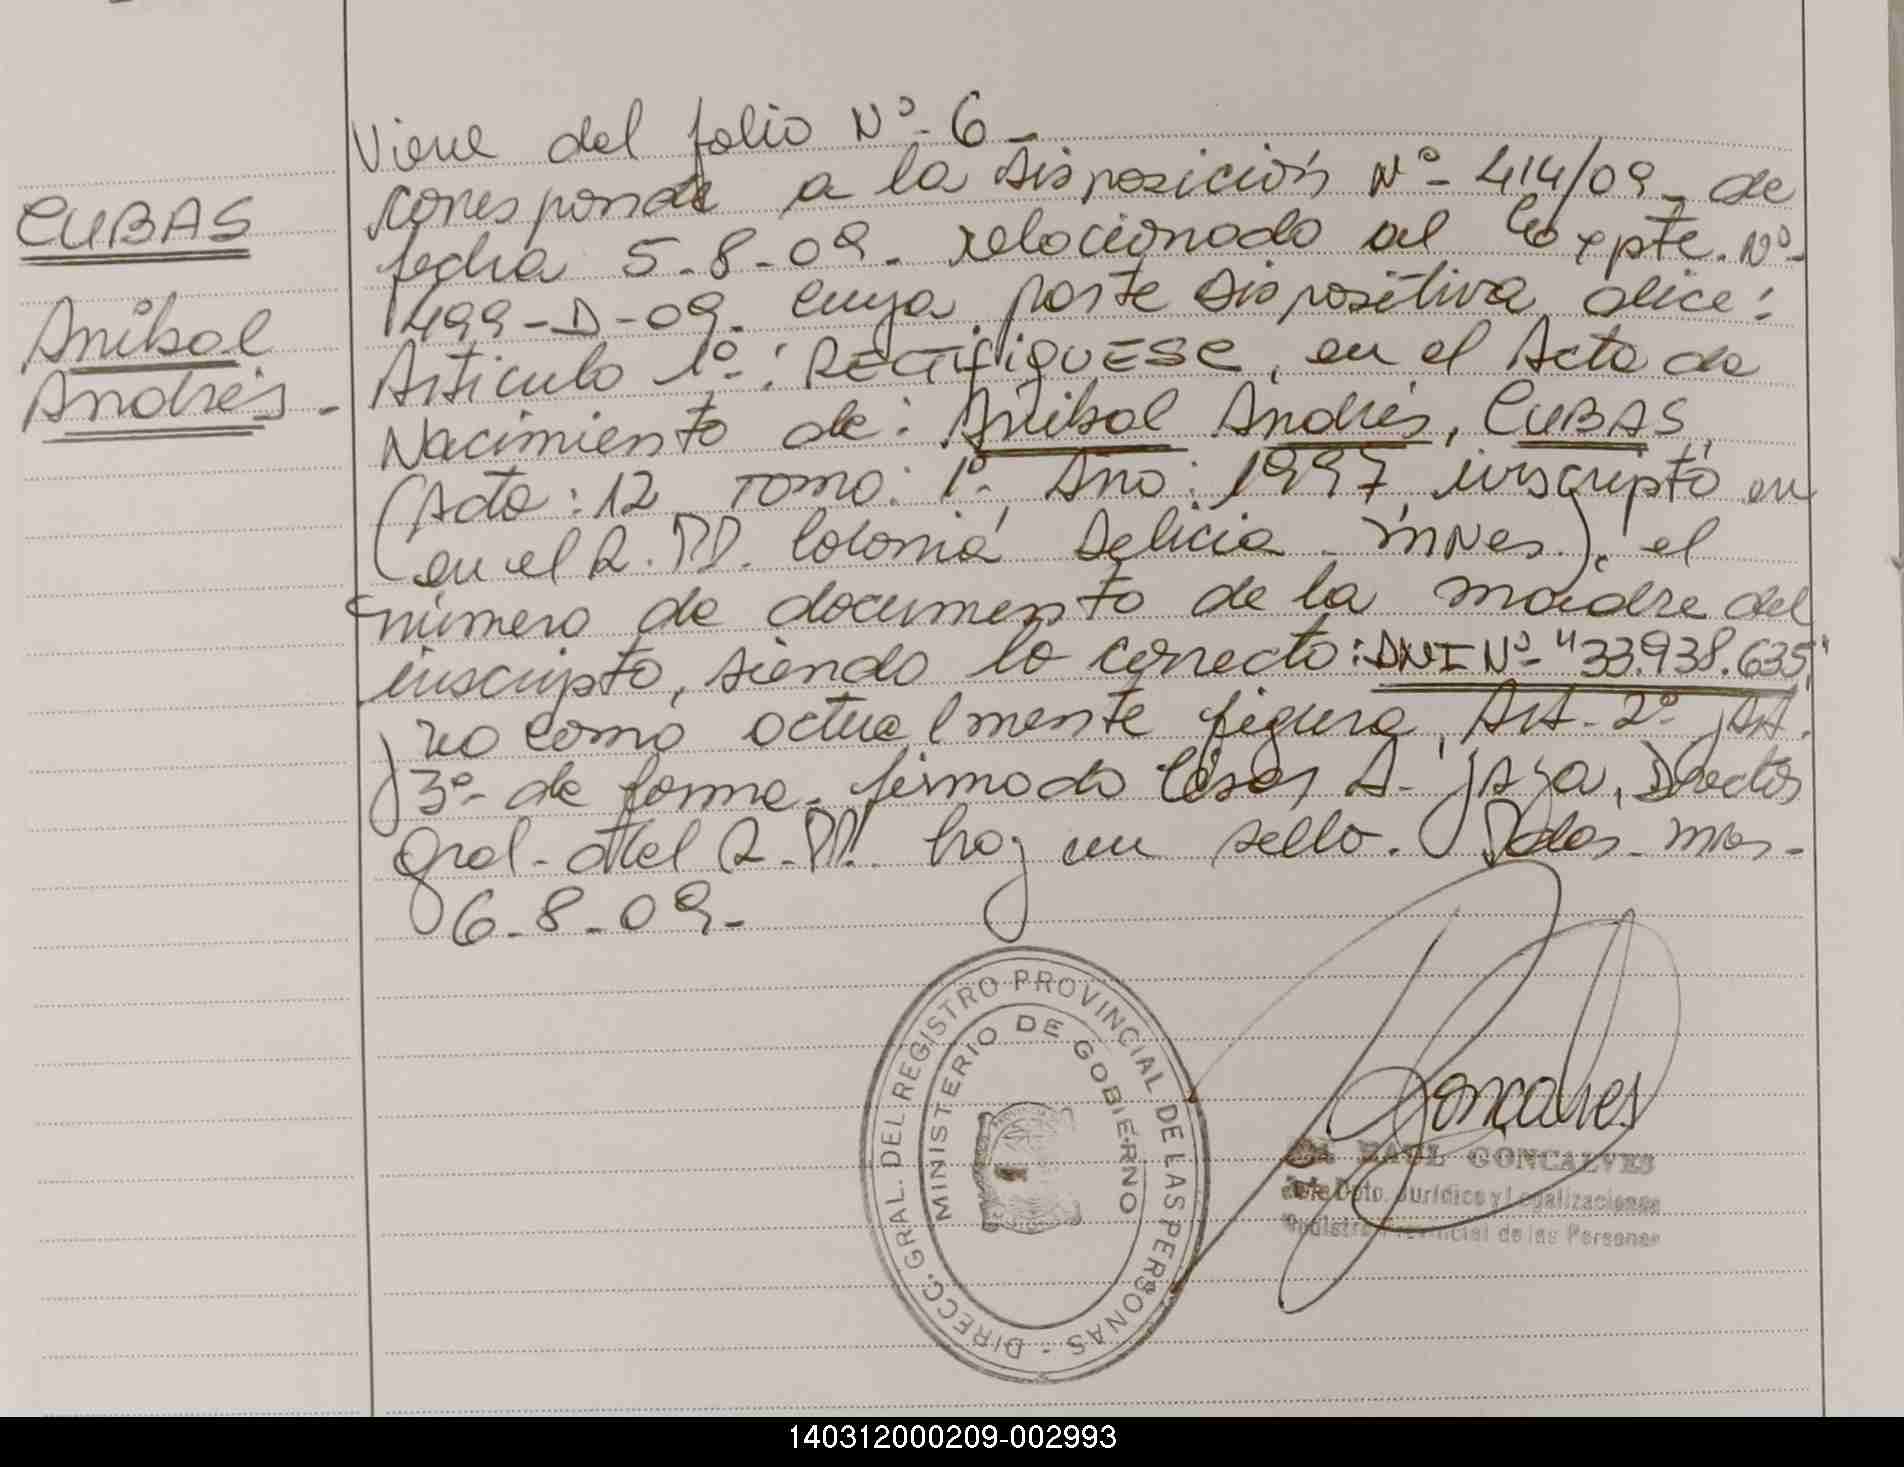 CUBAS
Anibal
Andrés.-
Viene del folio Nº- 6-
corresponde a la disposición Nº- 414/09- de
fecha 5-8-09- relacionado al Expte. Nº-
1499-D-09- cuya parte dispositiva dice:
Articulo 1º-: RECTIFIQUESE, en el Acta de
Nacimiento de: Anibal Andrés, CUBAS,
(Acta: 12 Tomo: 1º- Año: 1997, inscripto en
en el R.PP. Colonia Delicia - mnes). el
número de documento de la madre del
inscripto, siendo lo correcto: DNI Nº- "33.938.635"
y no como actualmente figura, Art- 2º- y Art.
3º- de forma- firmado César A- Director
Gral- del R.PP. hay un sello. Pdas- mns-
6-8-09-
DIRECC. GRAL. DEL REGISTRO PROVINCIAL DE LAS PERSONAS -
MINISTERIO DE GOBIERNO
Goncalves
RAUL GONCALVES
Jefe Dpto. Jurídico y Legalizaciones
Registro Provincial de las Personas
140312000209-002993